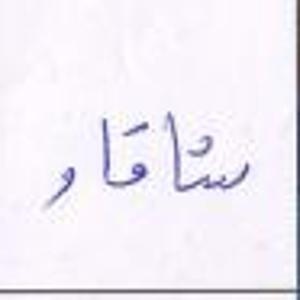 شاقار